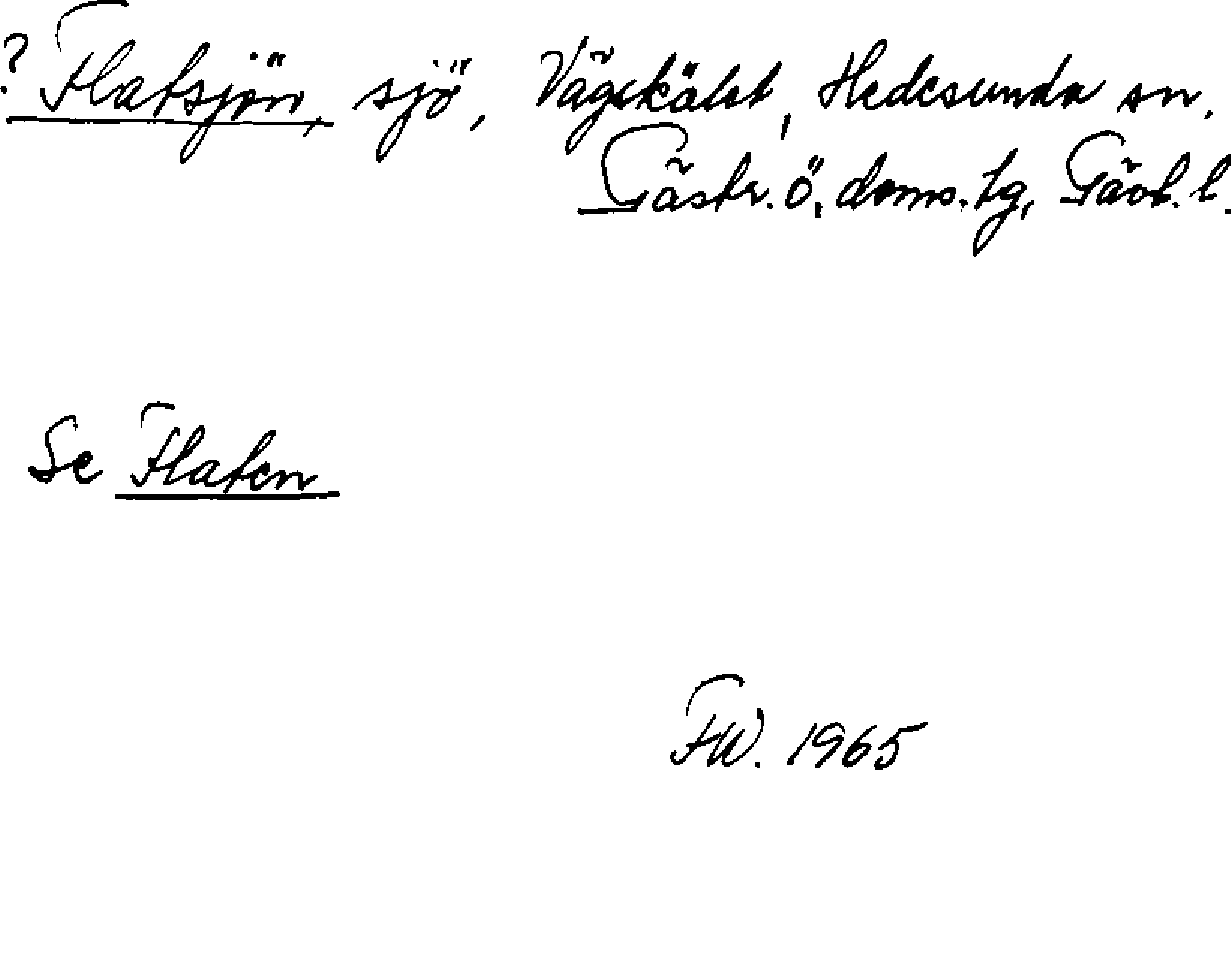 ? Flatsjön, sjö, Hedesunda sn.
Gästr. ö. doms. tg, Gävl. l.
Se Flaten
FW. 1965